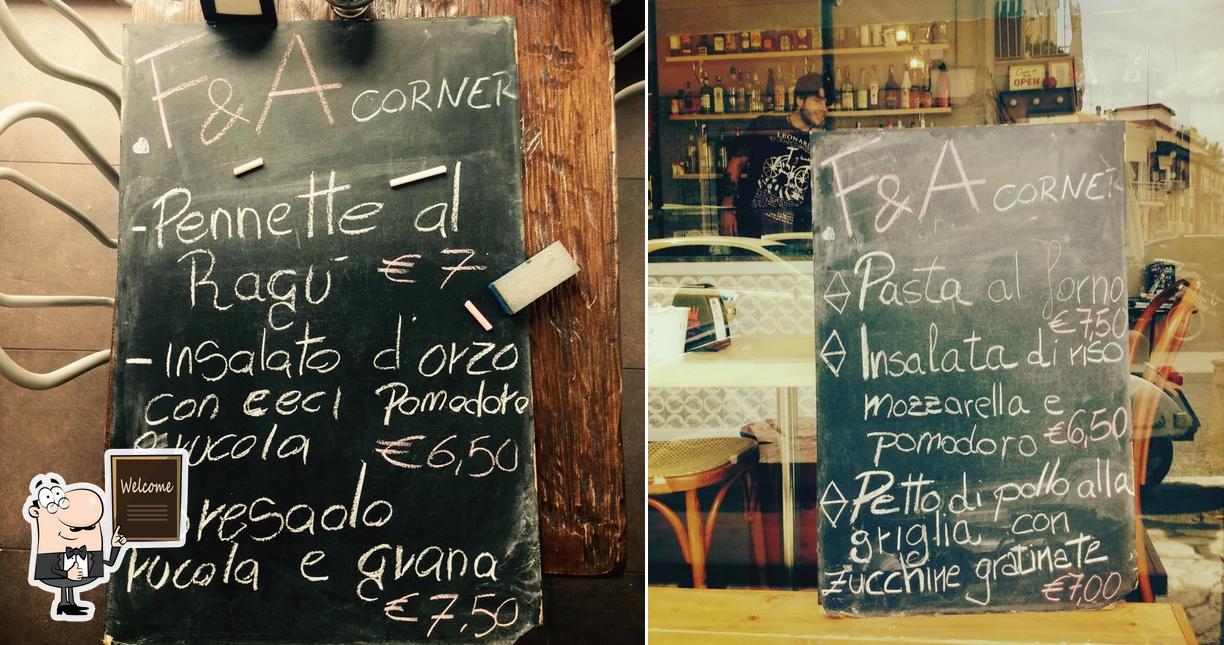 F&A CORNER
- Pennette al
Ragú € 7
- Insalata d'orzo
con ceci Pomodoro
e rucola €6,50
rucola e grana
€7,50
Welcome
OPEN
LEONARD
F&A CORNER
Pasta al forno
€7,50
Insalata di riso
mozzarella e
pomodoro €6,50
Petto di pollo alla
griglia con
zucchine gratinate
€7,00